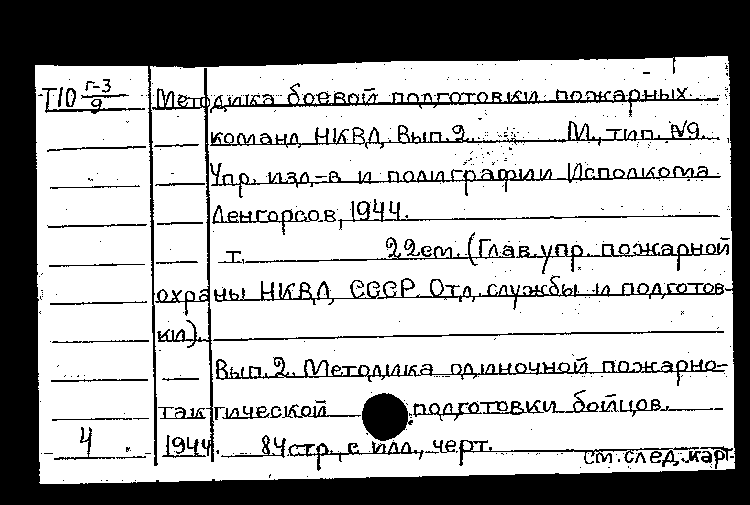 Т10 г-3/9 Методика боевой подготовки пожарных
команд НКВД. Вып. 2. М., тип. №9.
Упр. изд-в и полиграфии Исполкома
Ленгорсов, 1944.
т. 22 см. (Глав. упр. пожарной
охраны НКВД СССР. Отд. службы и подготов-
ки).
Вып. 2. Методика одиночной пожарно-
тактической подготовки бойцов.
4 1944. 84 стр., с илл., черт.
см. след. карт.